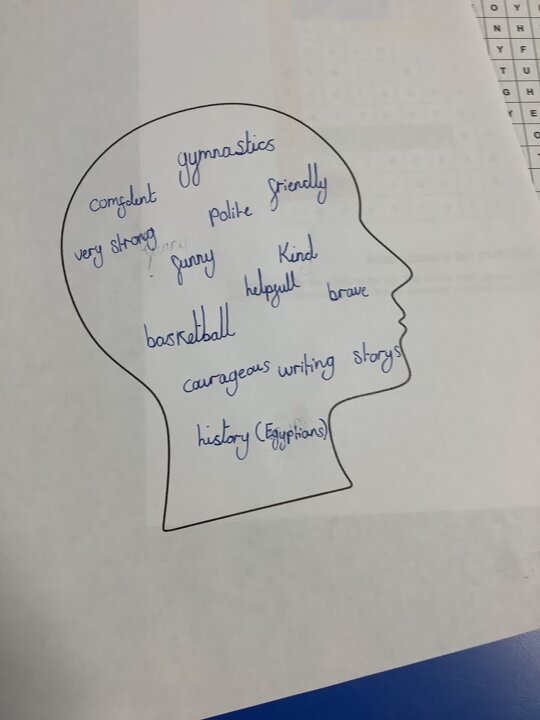 gymnastics
comfdent
polite
friendly
very strong
funny
Kind
helpfull
brave
basketball
courageous
writing storys
history (Egyptians)
O Y
N H
Y F
T U
G H
Y E
O